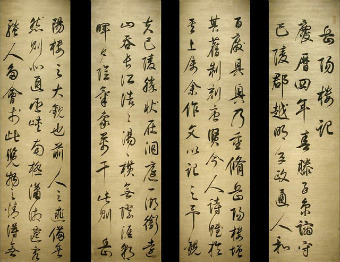 岳陽樓記
慶曆四年喜滕子京謫守
巴陵郡越明年政通人和
百廢具興乃重脩岳陽樓增
其舊制刻唐賢今人詩賦於
其上屬余作文以記之予觀
夫巴陵勝狀在洞庭一湖銜遠
山吞長江浩浩湯湯橫無際涯朝
暉夕陰氣象萬千此則岳
陽樓之大觀也前人之述備矣
然則北通巫峽南極瀟湘遷客
騷人多會於此覽物之情得無